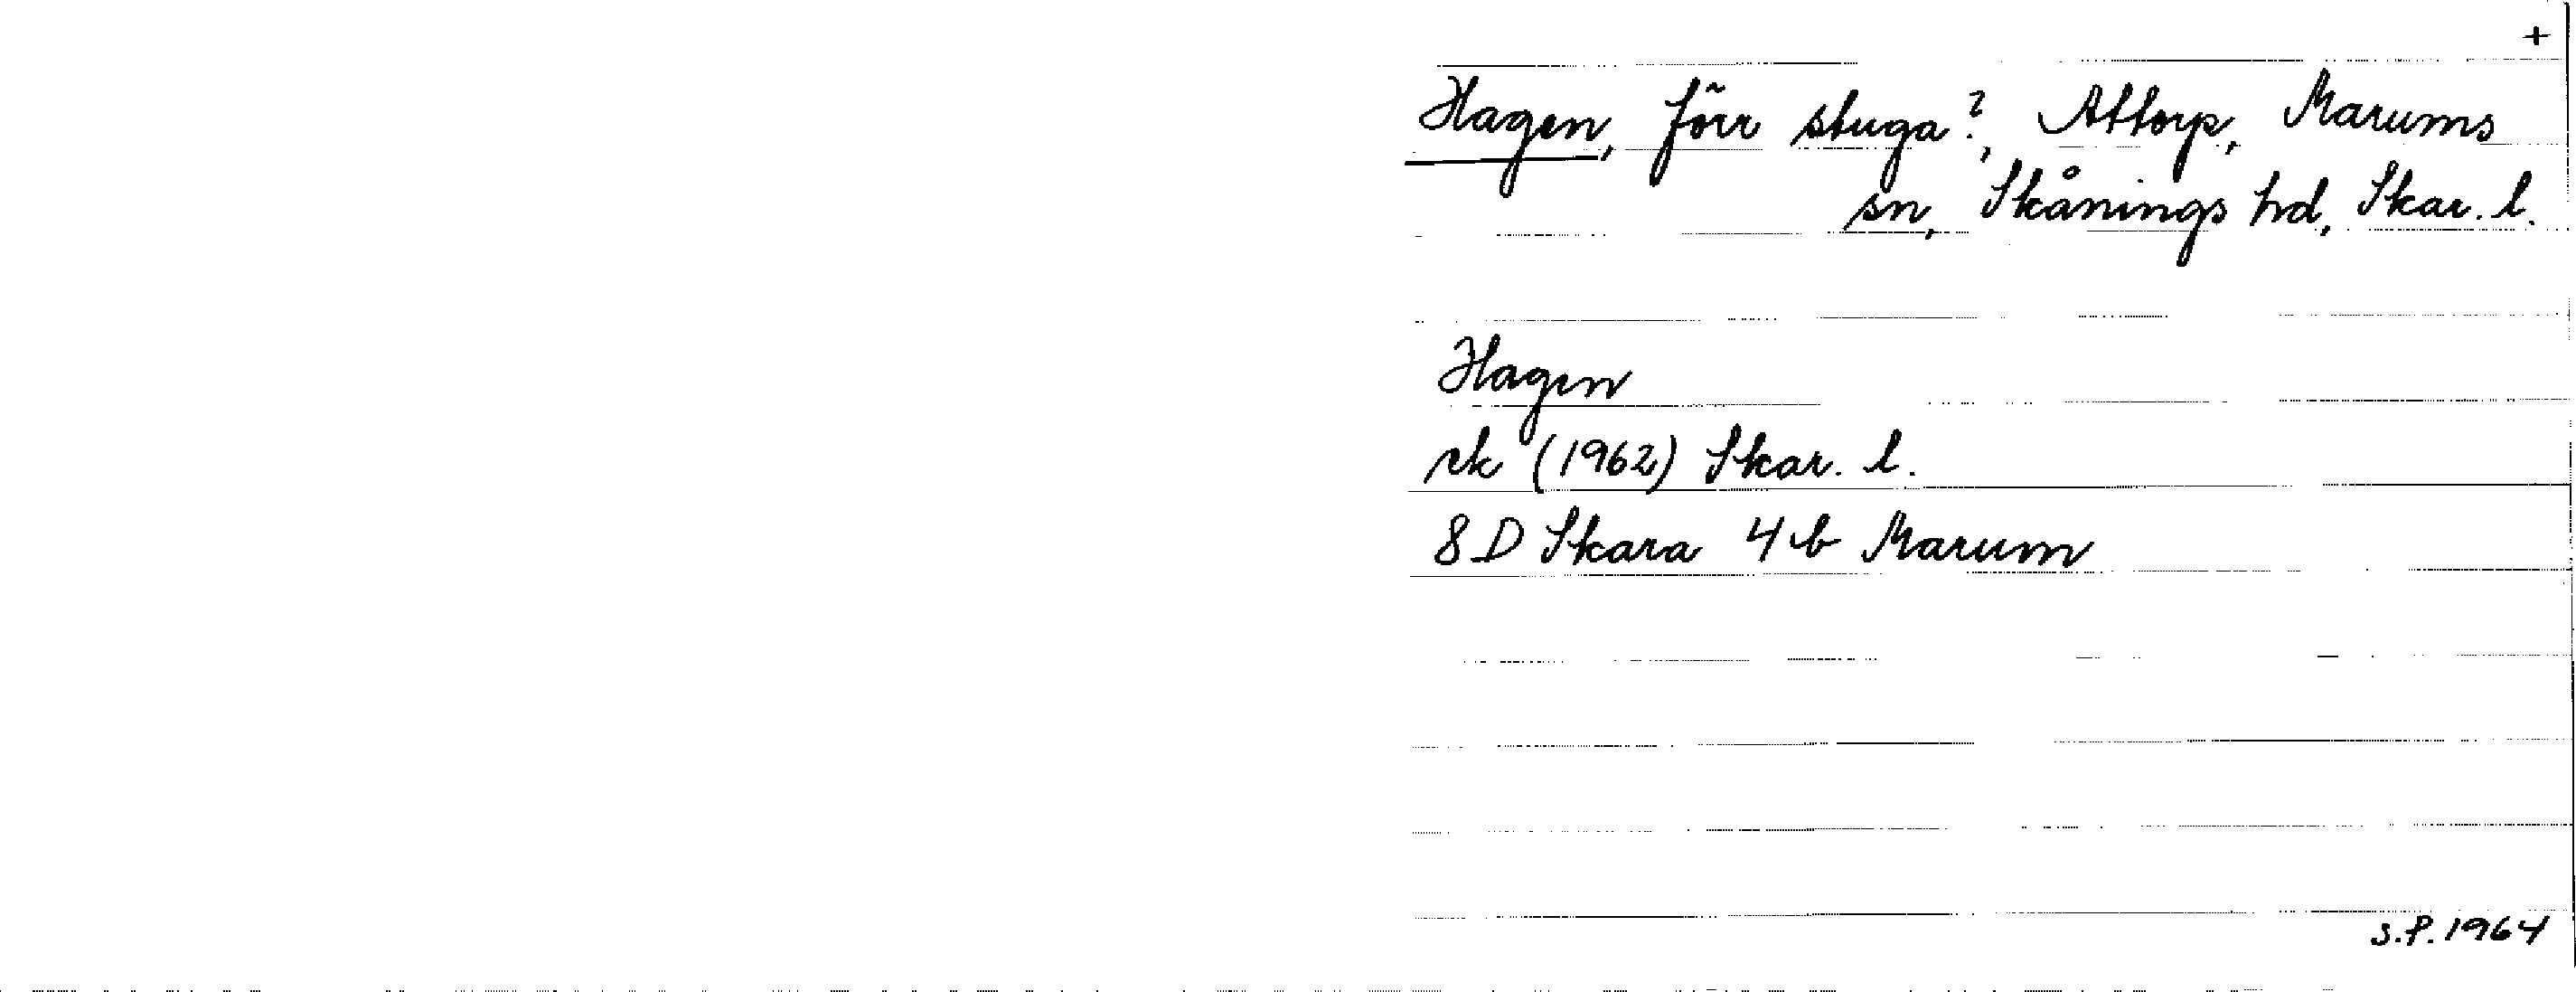 +
Hagen, förr stuga?, Attorp, Marums
sn, Skånings hd, Skar. l.
Hagen
rk (1962) Skar. l.
8D Skara 4b Marum
S.P. 1964